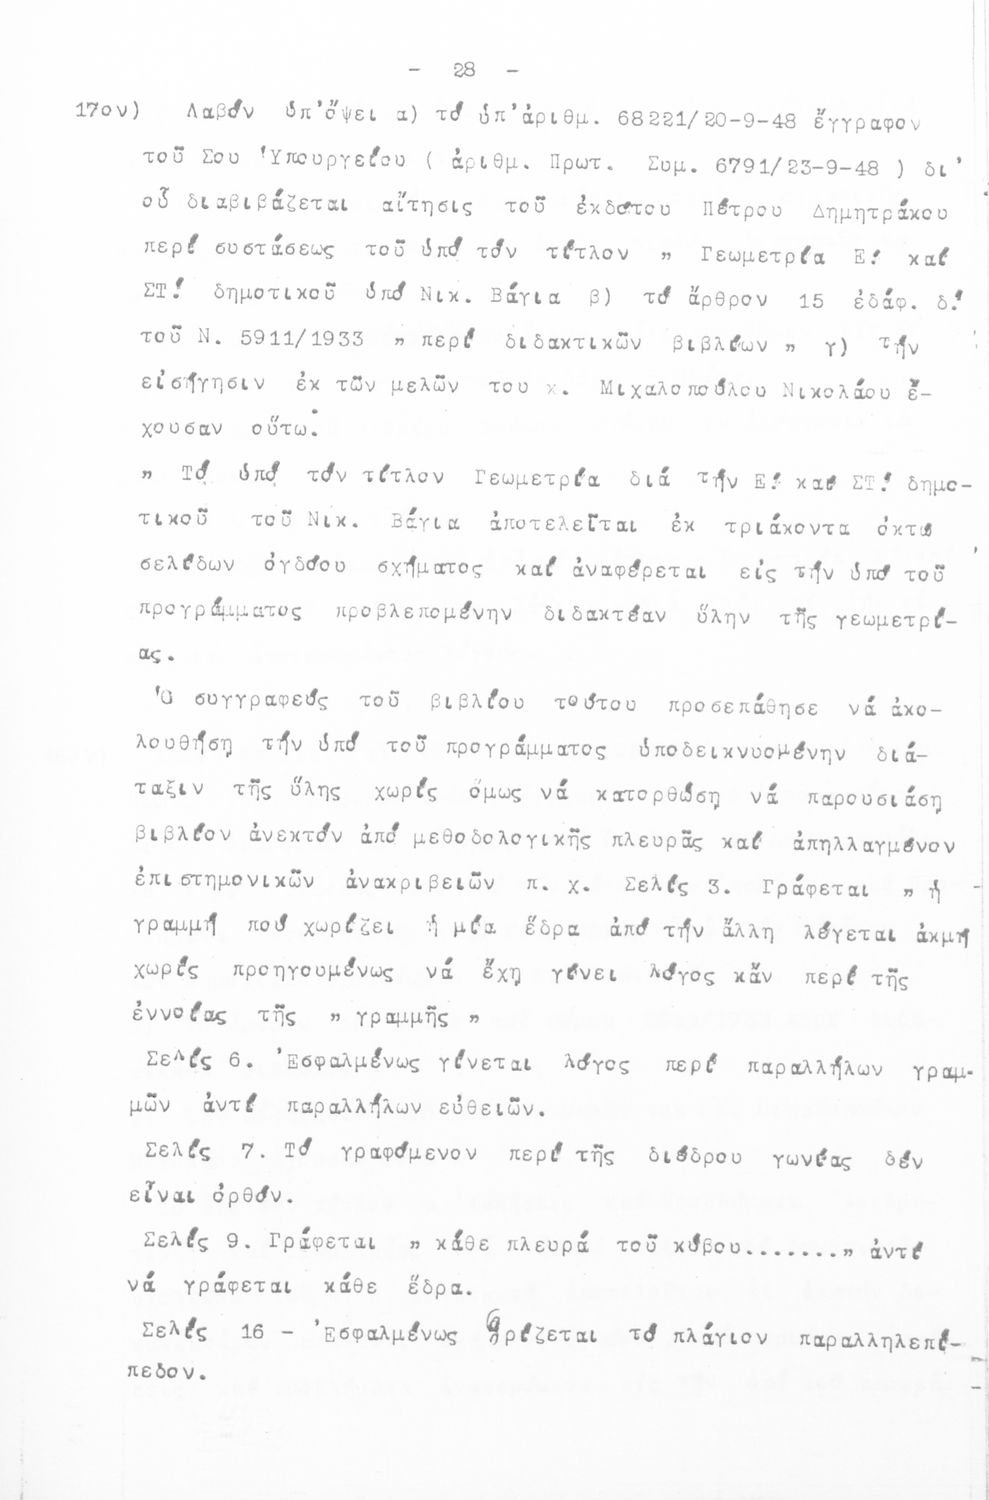 - 28 -
17ον) Λαβόν ὑπ'ὄψει α) τό ὑπ'ἀριθμ. 68221/20-9-48 ἔγγραφον
τοῦ Σου Ὑπουργείου ( ἀριθμ. Πρωτ. Συμ. 6791/23-9-48 ) δι'
οὗ διαβιβάζεται αἴτησις τοῦ ἐκδότου Πέτρου Δημητράκου
περί συστάσεως τοῦ ὑπό τόν τίτλον „ Γεωμετρία Ε! καί
ΣΤ! δημοτικοῦ ὑπό Νικ. Βάγια β) τό ἄρθρον 15 ἐδάφ. δ!
τοῦ Ν. 5911/1933 „ περί διδακτικῶν βιβλίων „ γ) τήν
εἰσήγησιν ἐκ τῶν μελῶν του κ. Μιχαλοπούλου Νικολάου ἔ-
χουσαν οὕτω:
„ Τό ὑπό τόν τίτλον Γεωμετρία διά τήν Ε! καί ΣΤ! δημο-
τικοῦ τοῦ Νικ. Βάγια ἀποτελεῖται ἐκ τριάκοντα ὀκτώ
σελίδων ὀγδόου σχήματος καί ἀναφέρεται εἰς τήν ὑπό τοῦ
προγράμματος προβλεπομένην διδακτέαν ὕλην τῆς γεωμετρί-
ας.
Ὁ συγγραφεύς τοῦ βιβλίου τούτου προσεπάθησε νά ἀκο-
λουθήσῃ τήν ὑπό τοῦ προγράμματος ὑποδεικνυομένην διά-
ταξιν τῆς ὕλης χωρίς ὅμως νά κατορθώσῃ νά παρουσιάσῃ
βιβλίον ἀνεκτόν ἀπό μεθοδολογικῆς πλευρᾶς καί ἀπηλλαγμένον
ἐπιστημονικῶν ἀνακριβειῶν π. χ. Σελίς 3. Γράφεται „ ἡ
γραμμή πού χωρίζει ἡ μία ἕδρα ἀπό τήν ἄλλη λέγεται ἀκμή
χωρίς προηγουμένως νά ἔχῃ γίνει λόγος κἄν περί τῆς
ἐννοίας τῆς „ γραμμῆς „
Σελίς 6. Ἐσφαλμένως γίνεται λόγος περί παραλλήλων γραμ-
μῶν ἀντί παραλλήλων εὐθειῶν.
Σελίς 7. Τό γραφόμενον περί τῆς διέδρου γωνίας δέν
εἶναι ὀρθόν.
Σελίς 9. Γράφεται „ κάθε πλευρά τοῦ κύβου.......„ ἀντί
νά γράφεται κάθε ἕδρα.
Σελίς 16 - Ἐσφαλμένως ὁρίζεται τό πλάγιον παραλληλεπί-
πεδον.